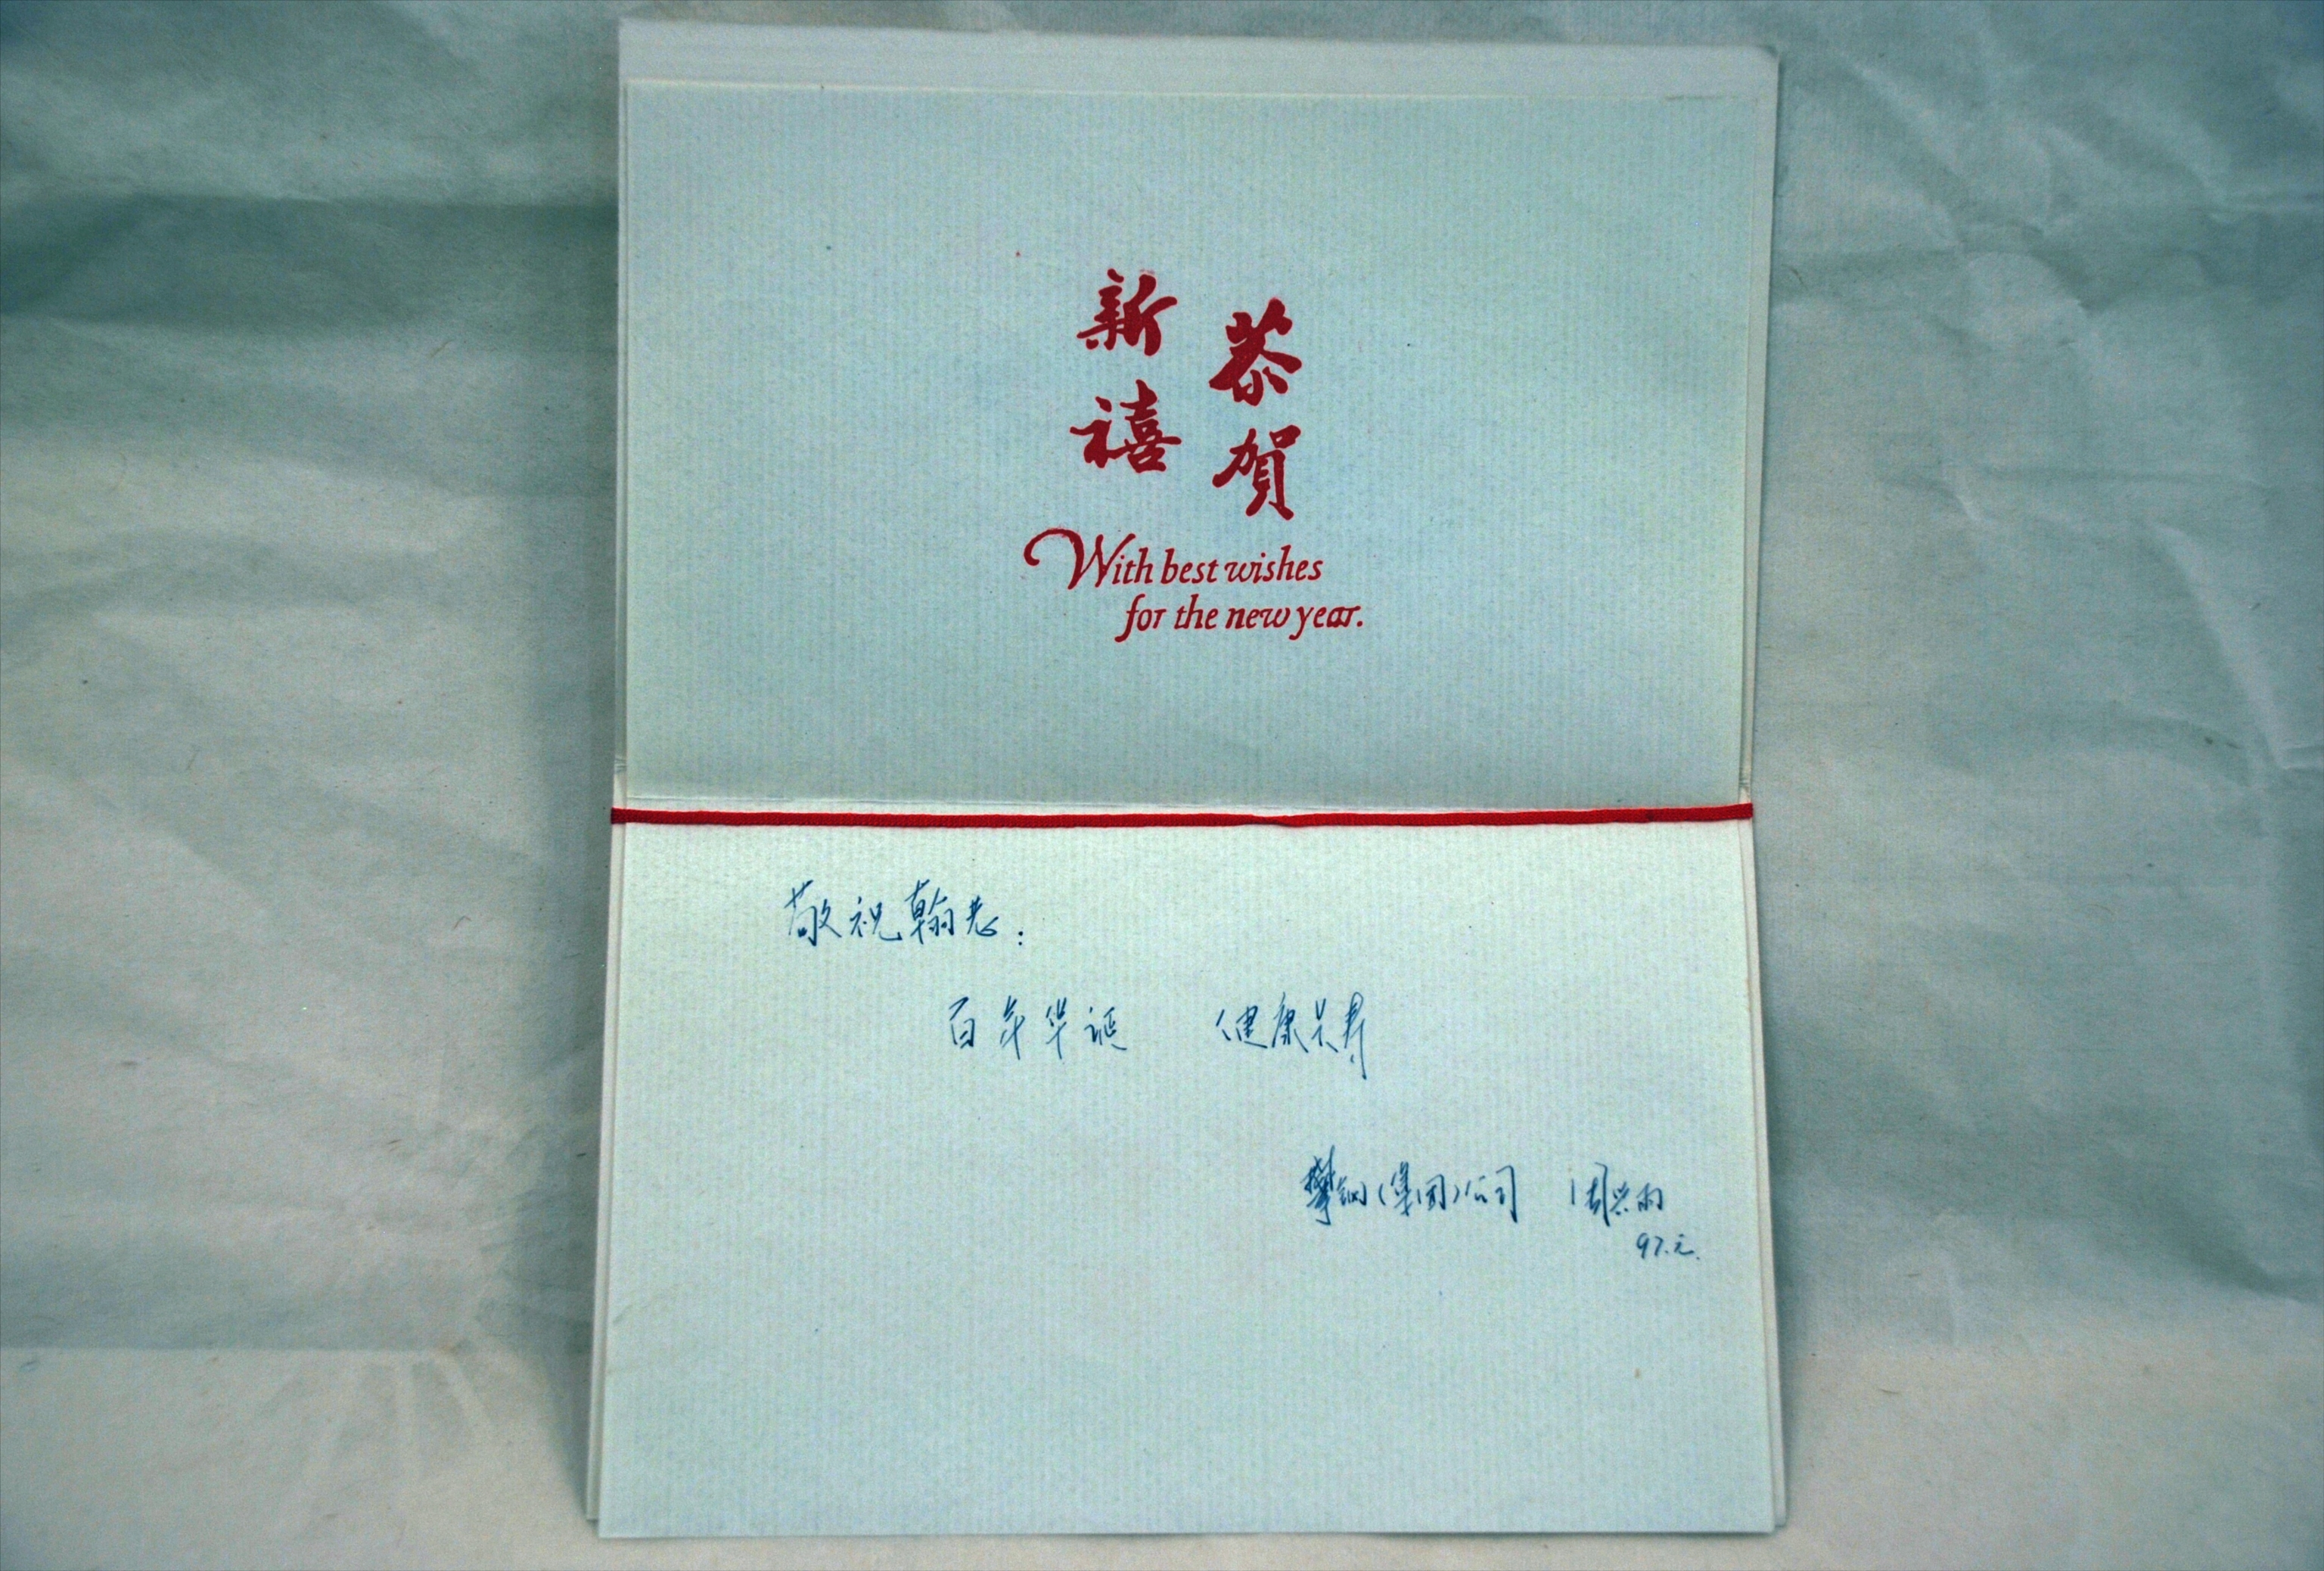 恭賀
新禧
With best wishes
for the new year.
敬祝翰老：
百年华诞 健康长寿
攀钢(集团)公司 周兴雨
97.元.